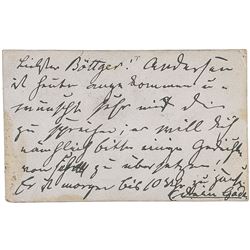 Liebster Böttger! Andersen
ist heute angekommen u.
wünscht sehr mit dir
zu sprechen; er will dich
nämlich bitten einige Gedichte
von zu übersetzen!
Er ist morgen bis 10 Uhr zu